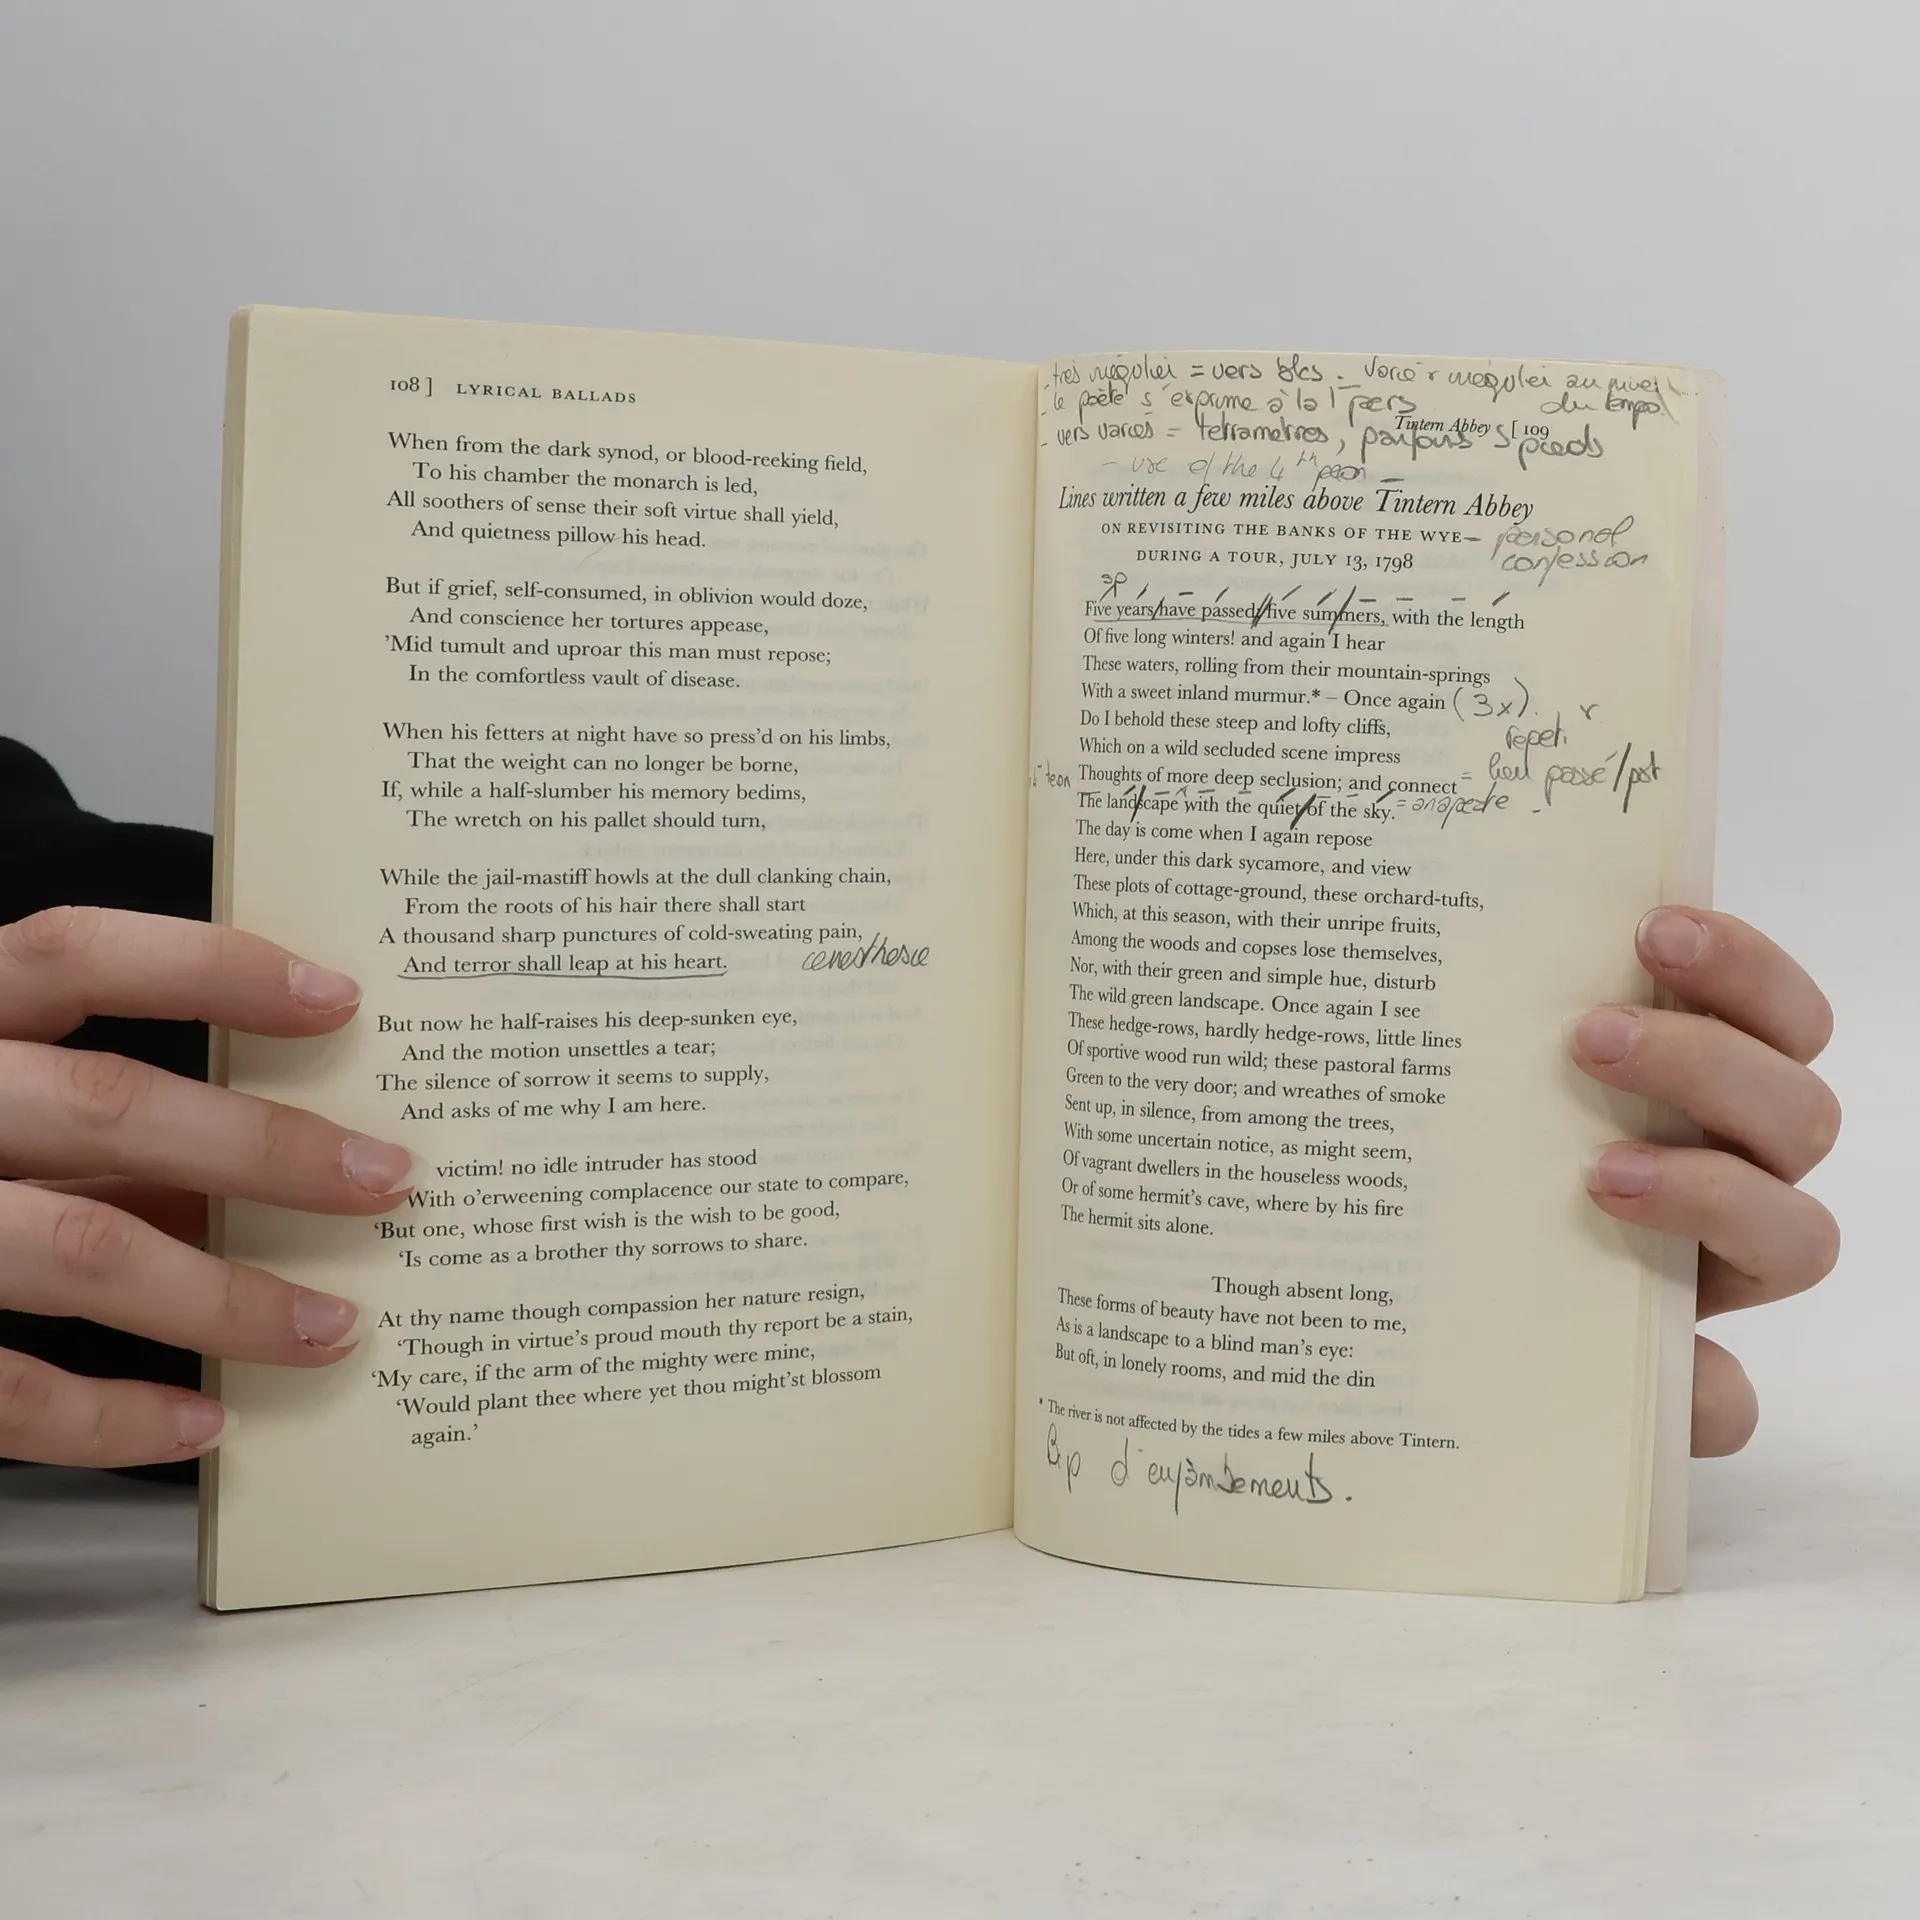 108 ] LYRICAL BALLADS
When from the dark synod, or blood-reeking field,
To his chamber the monarch is led,
All soothers of sense their soft virtue shall yield,
And quietness pillow his head.
But if grief, self-consumed, in oblivion would doze,
And conscience her tortures appease,
’Mid tumult and uproar this man must repose;
In the comfortless vault of disease.
When his fetters at night have so press’d on his limbs,
That the weight can no longer be borne,
If, while a half-slumber his memory bedims,
The wretch on his pallet should turn,
While the jail-mastiff howls at the dull clanking chain,
From the roots of his hair there shall start
A thousand sharp punctures of cold-sweating pain,
And terror shall leap at his heart. cenesthesie
But now he half-raises his deep-sunken eye,
And the motion unsettles a tear;
The silence of sorrow it seems to supply,
And asks of me why I am here.
victim! no idle intruder has stood
With o’erweening complacence our state to compare,
‘But one, whose first wish is the wish to be good,
‘Is come as a brother thy sorrows to share.
At thy name though compassion her nature resign,
‘Though in virtue’s proud mouth thy report be a stain,
‘My care, if the arm of the mighty were mine,
‘Would plant thee where yet thou might’st blossom
again.’
- très = vers blcs. au
du tempo
- le poète s'exprime à la 1 pers
Tintern Abbey [ 109
- vers variés = tetramètres, parfois 5 pieds
- use of the 4th peon
Lines written a few miles above Tintern Abbey
ON REVISITING THE BANKS OF THE WYE – personal
DURING A TOUR, JULY 13, 1798 confession
sp
Five years have passed; five summers, with the length
Of five long winters! and again I hear
These waters, rolling from their mountain-springs
With a sweet inland murmur.* – Once again (3x).
Do I behold these steep and lofty cliffs, repet.
Which on a wild secluded scene impress
Thoughts of more deep seclusion; and connect = lieu passé/pst
The landscape with the quiet of the sky. = anapeste
The day is come when I again repose
Here, under this dark sycamore, and view
These plots of cottage-ground, these orchard-tufts,
Which, at this season, with their unripe fruits,
Among the woods and copses lose themselves,
Nor, with their green and simple hue, disturb
The wild green landscape. Once again I see
These hedge-rows, hardly hedge-rows, little lines
Of sportive wood run wild; these pastoral farms
Green to the very door; and wreathes of smoke
Sent up, in silence, from among the trees,
With some uncertain notice, as might seem,
Of vagrant dwellers in the houseless woods,
Or of some hermit’s cave, where by his fire
The hermit sits alone.
Though absent long,
These forms of beauty have not been to me,
As is a landscape to a blind man’s eye:
But oft, in lonely rooms, and mid the din
* The river is not affected by the tides a few miles above Tintern.
Bcp d'enjambements.